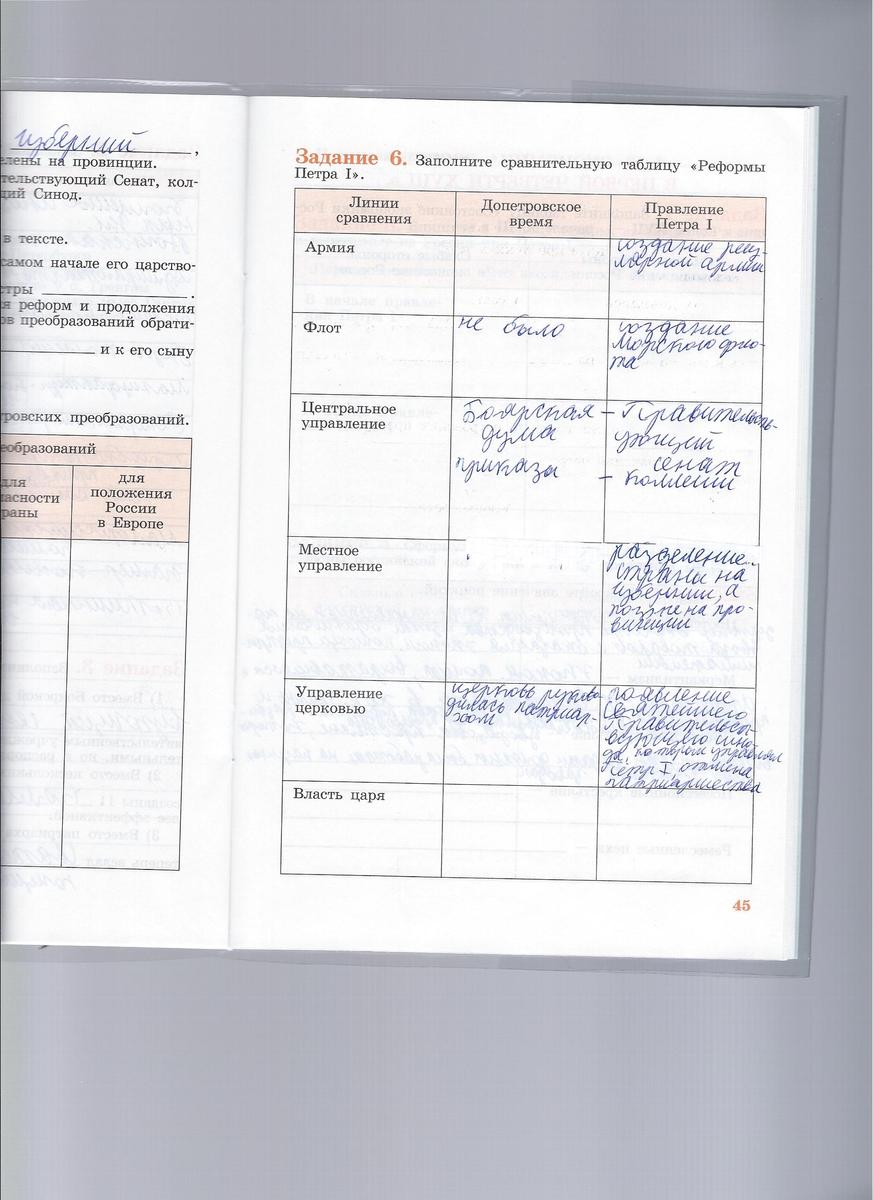 губерний ,
елены на провинции.
тельствующий Сенат, кол-
щий Синод.
в тексте.
самом начале его царство-
стры .
я реформ и продолжения
ов преобразований обрати-
и к его сыну
ровских преобразований.
еобразований
для
асности
раны
для
положения
России
в Европе
Задание 6. Заполните сравнительную таблицу «Реформы
Петра I».
Линии
сравнения
Допетровское
время
Правление
Петра I
Армия
создание регу-
лярной армии
Флот
не было
создание
морского фло-
та
Центральное
управление
Боярская
дума
приказы
– Правительств-
ующий
сенат
– коллегии
Местное
управление
разделение
страны на
губернии, а
позже на про-
винции
Управление
церковью
церковь руково-
дилась патриар-
хом
появление
Святейшего
Правительст-
вующего сино-
да, которым управлял
Петр I, отмена
патриаршества
Власть царя
45